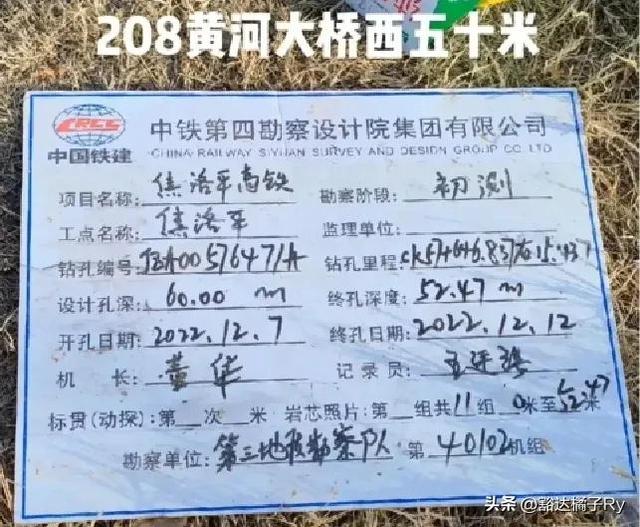 208黄河大桥西五十米
CRCC
中国铁建
中铁第四勘察设计院集团有限公司
CHINA RAILWAY SIYUAN SURVEY AND DESIGN GROUP CO LTD
项目名称: 焦洛平高铁 勘察阶段: 初测
工点名称: 焦洛平 监理单位:
钻孔编号: 钻孔里程:
设计孔深: 60.00 m 终孔深度: 52.47 m
开孔日期: 2022.12.7 终孔日期: 2022.12.12
机 长: 黄华 记录员:
标贯(动探): 第 次 米 岩芯照片: 第 组共11组 0米至52.47米
勘察单位: 第三地质勘察队 第40102机组
头条 @豁达橘子Ry